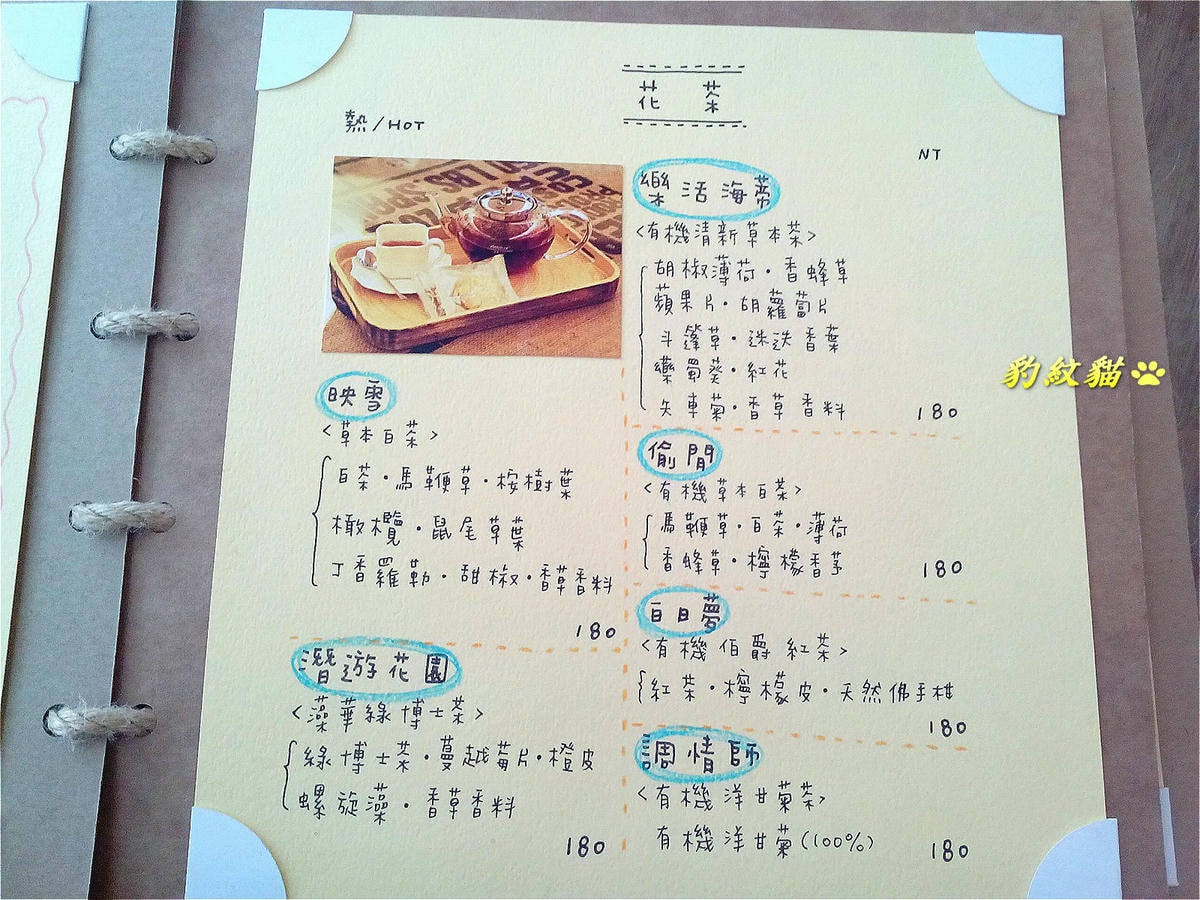 花 茶
熱/HOT
NT
映雪
<草本白茶>
白茶·馬鞭草·桉樹葉
橄欖·鼠尾草葉
丁香羅勒·甜椒·香草香料
180
潛遊花園
<藻華綠博士茶>
綠博士茶·蔓越莓片·橙皮
螺旋藻·香草香料
180
樂活海蒂
<有機清新草本茶>
胡椒薄荷·香蜂草
蘋果片·胡蘿蔔片
斗篷草·迷迭香葉
藥蜀葵·紅花
矢車菊·香草香料
180
偷閒
<有機草本白茶>
馬鞭草·白茶·薄荷
香蜂草·檸檬香茅
180
白日夢
<有機伯爵紅茶>
紅茶·檸檬皮·天然佛手柑
180
調情師
<有機洋甘菊茶>
有機洋甘菊(100%)
180
豹紋貓